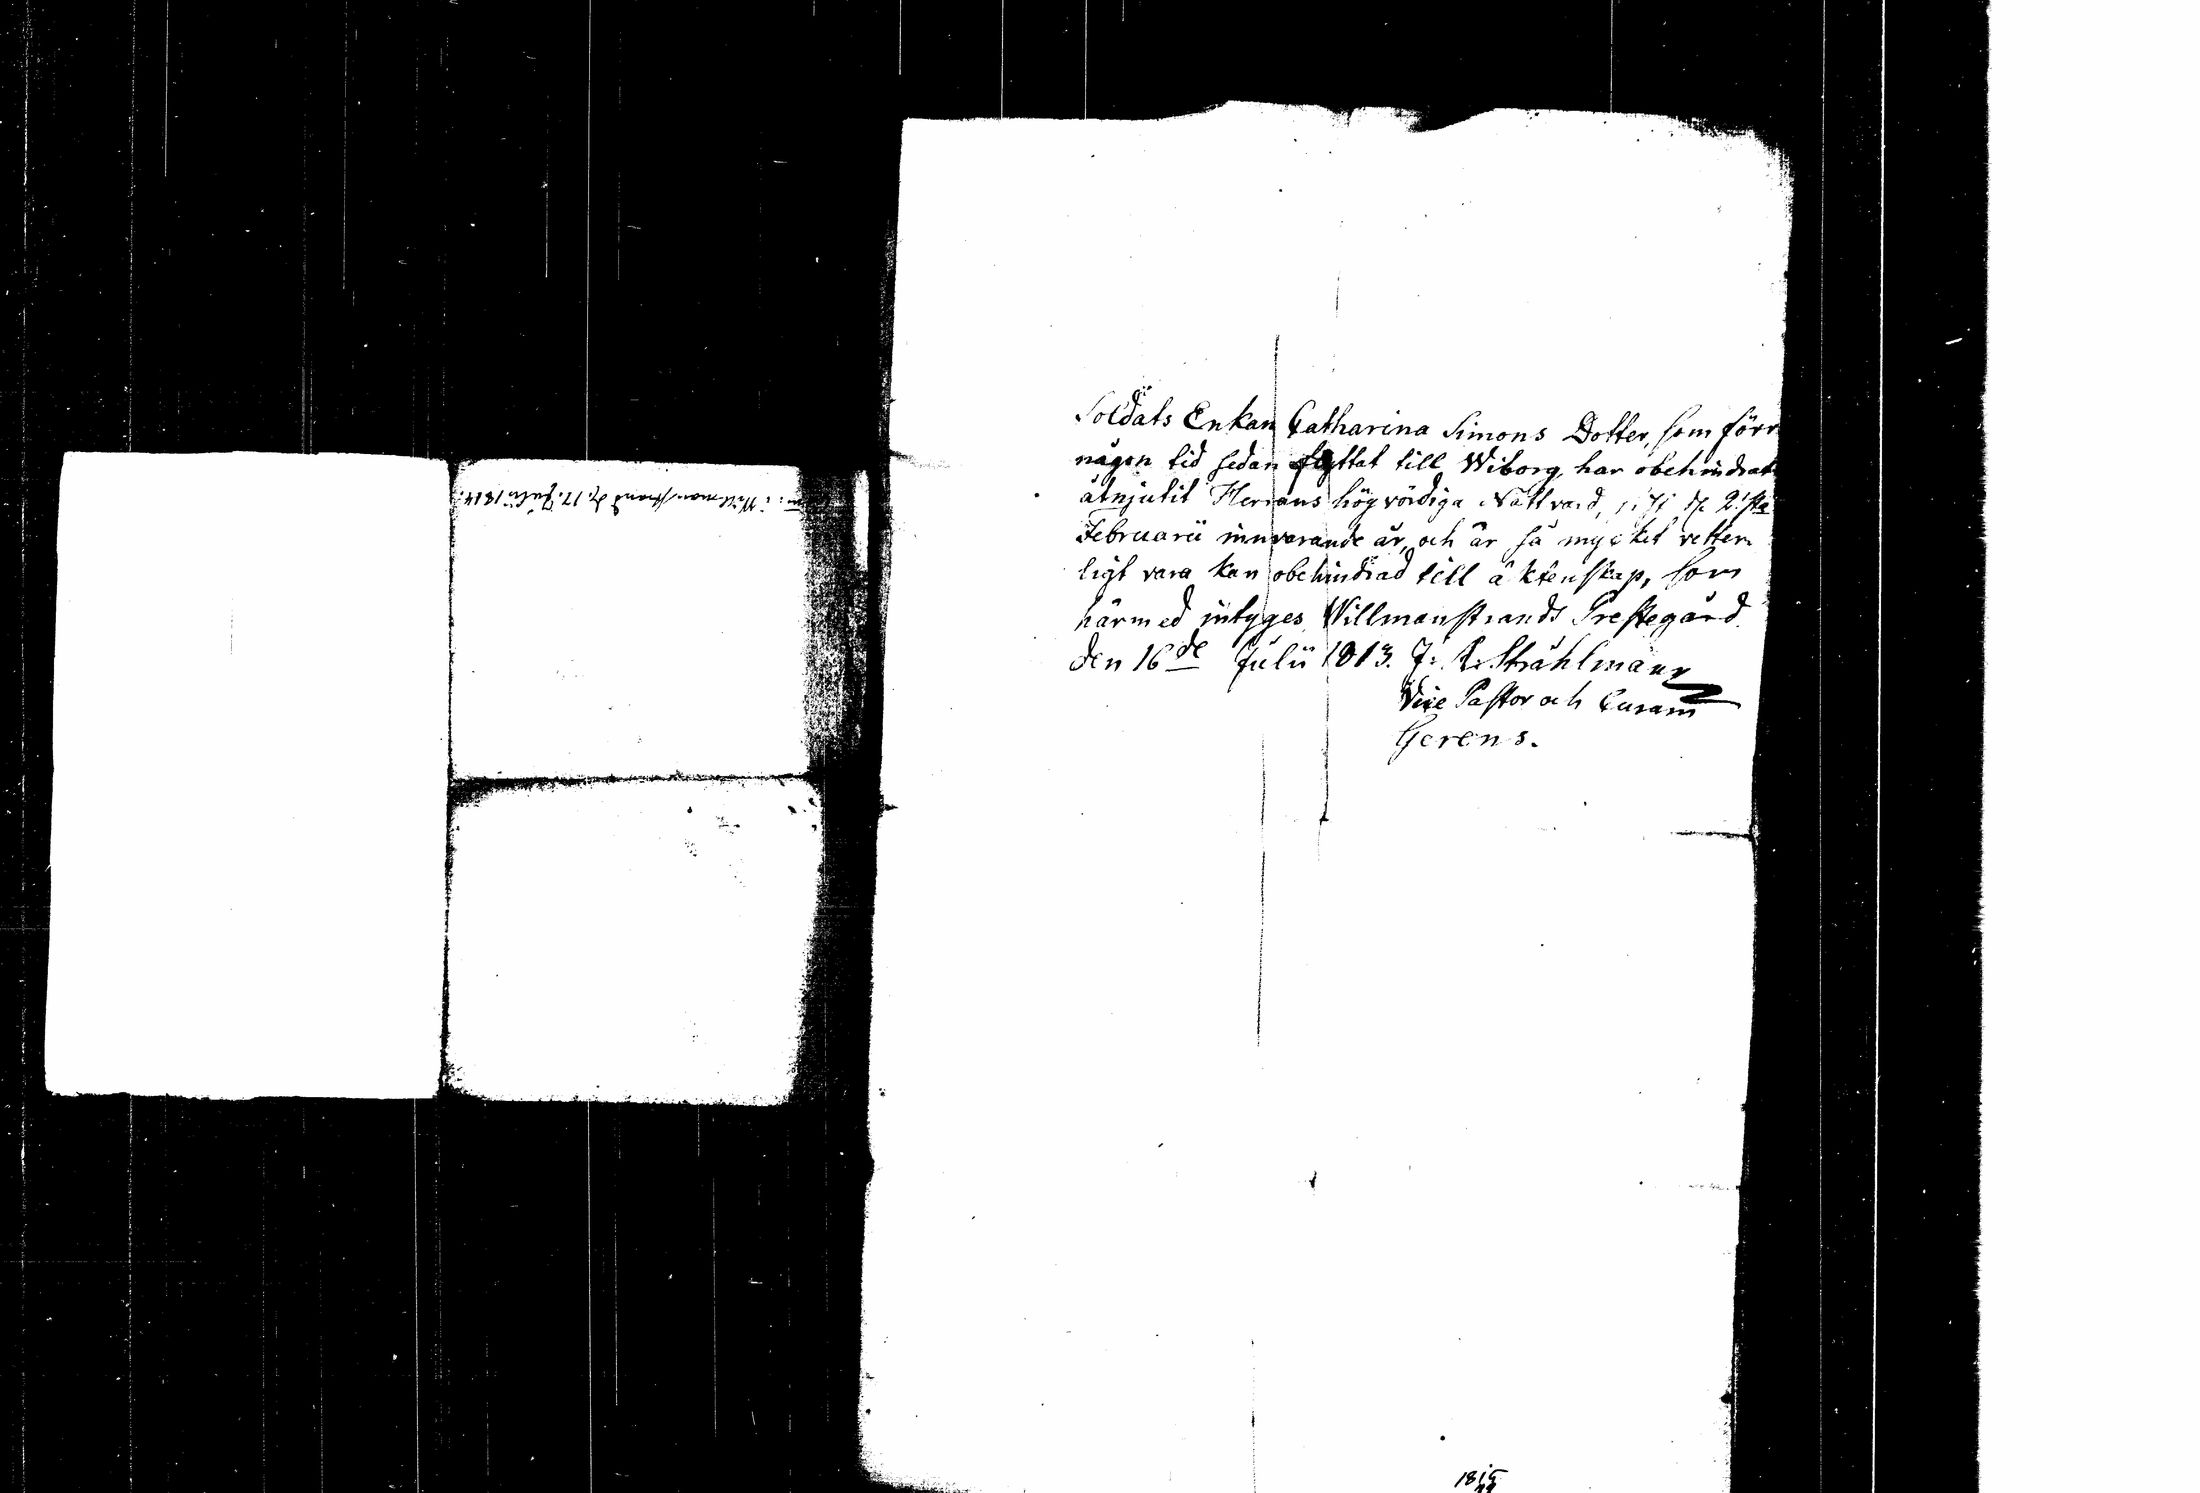 m: i Willmanstrand d. 17. Julii 1814.
Soldats Enkan Catharina Simons Dotter, som förr
någon tid sedan flyttat till Wiborg, har obehindrat
åtnjutit Herrans högvördiga Nattvard, sist d. 21sta
Februarii innvarande år, och är så mycket vetter-
ligt vara kan obehindrad till äktenskap, som
härmed intyges Willmanstrands Prestegård
den 16de Julii 1813. J: A: Stråhlmann
Vice Pastor och Curam
Gerens.
18